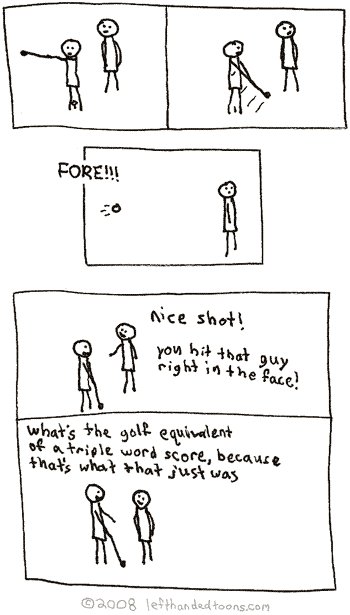 FORE!!!
nice shot!
you hit that guy
right in the face!
what's the golf equivalent
of a triple word score, because
that's what that just was
©2008 lefthandedtoons.com